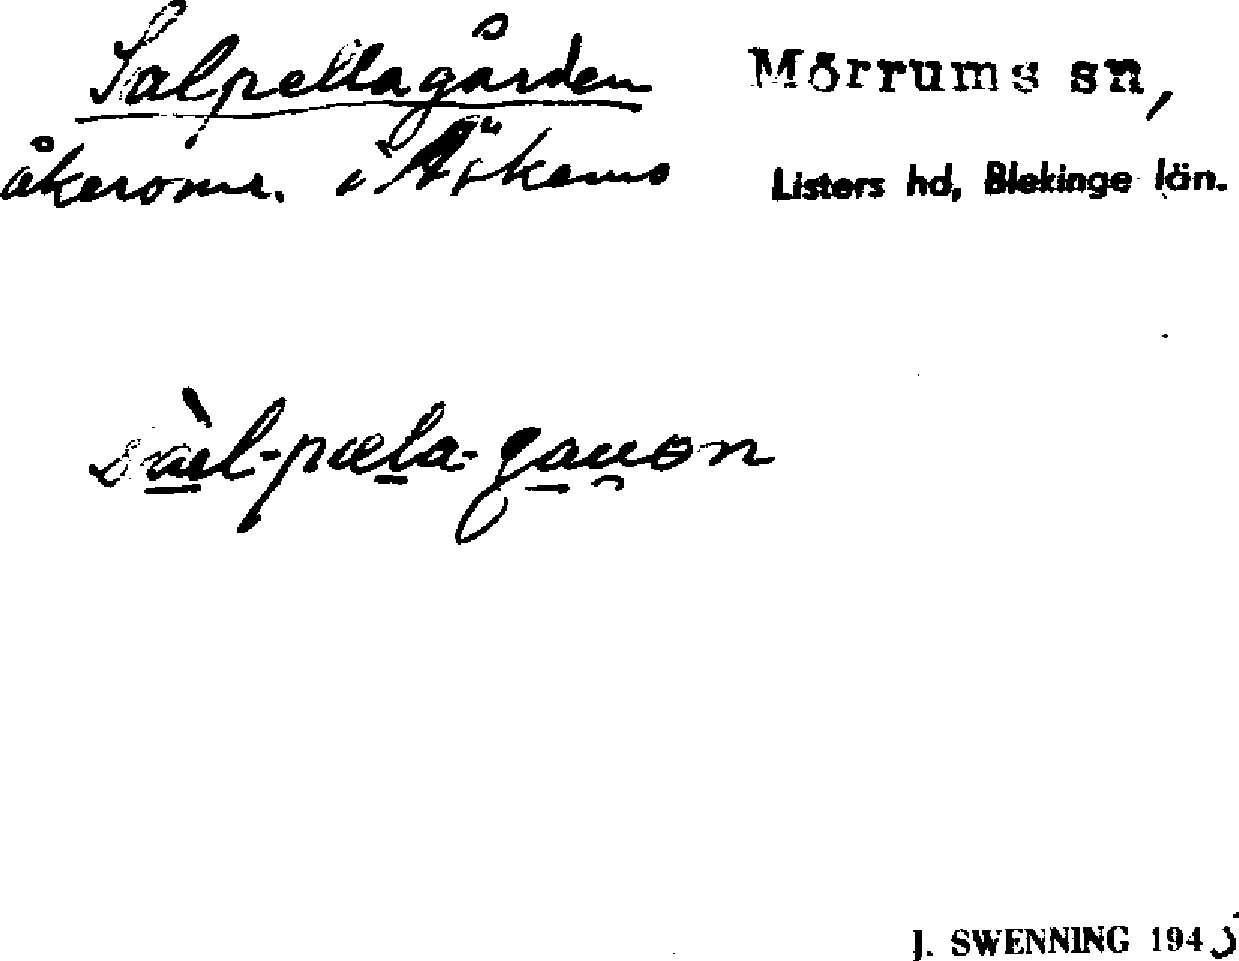 Salpellagården
Mörrums sn,
åkeromr. i Äskems
Listers hd, Blekinge län.
sál-pæla-gauon
J. SWENNING 1945